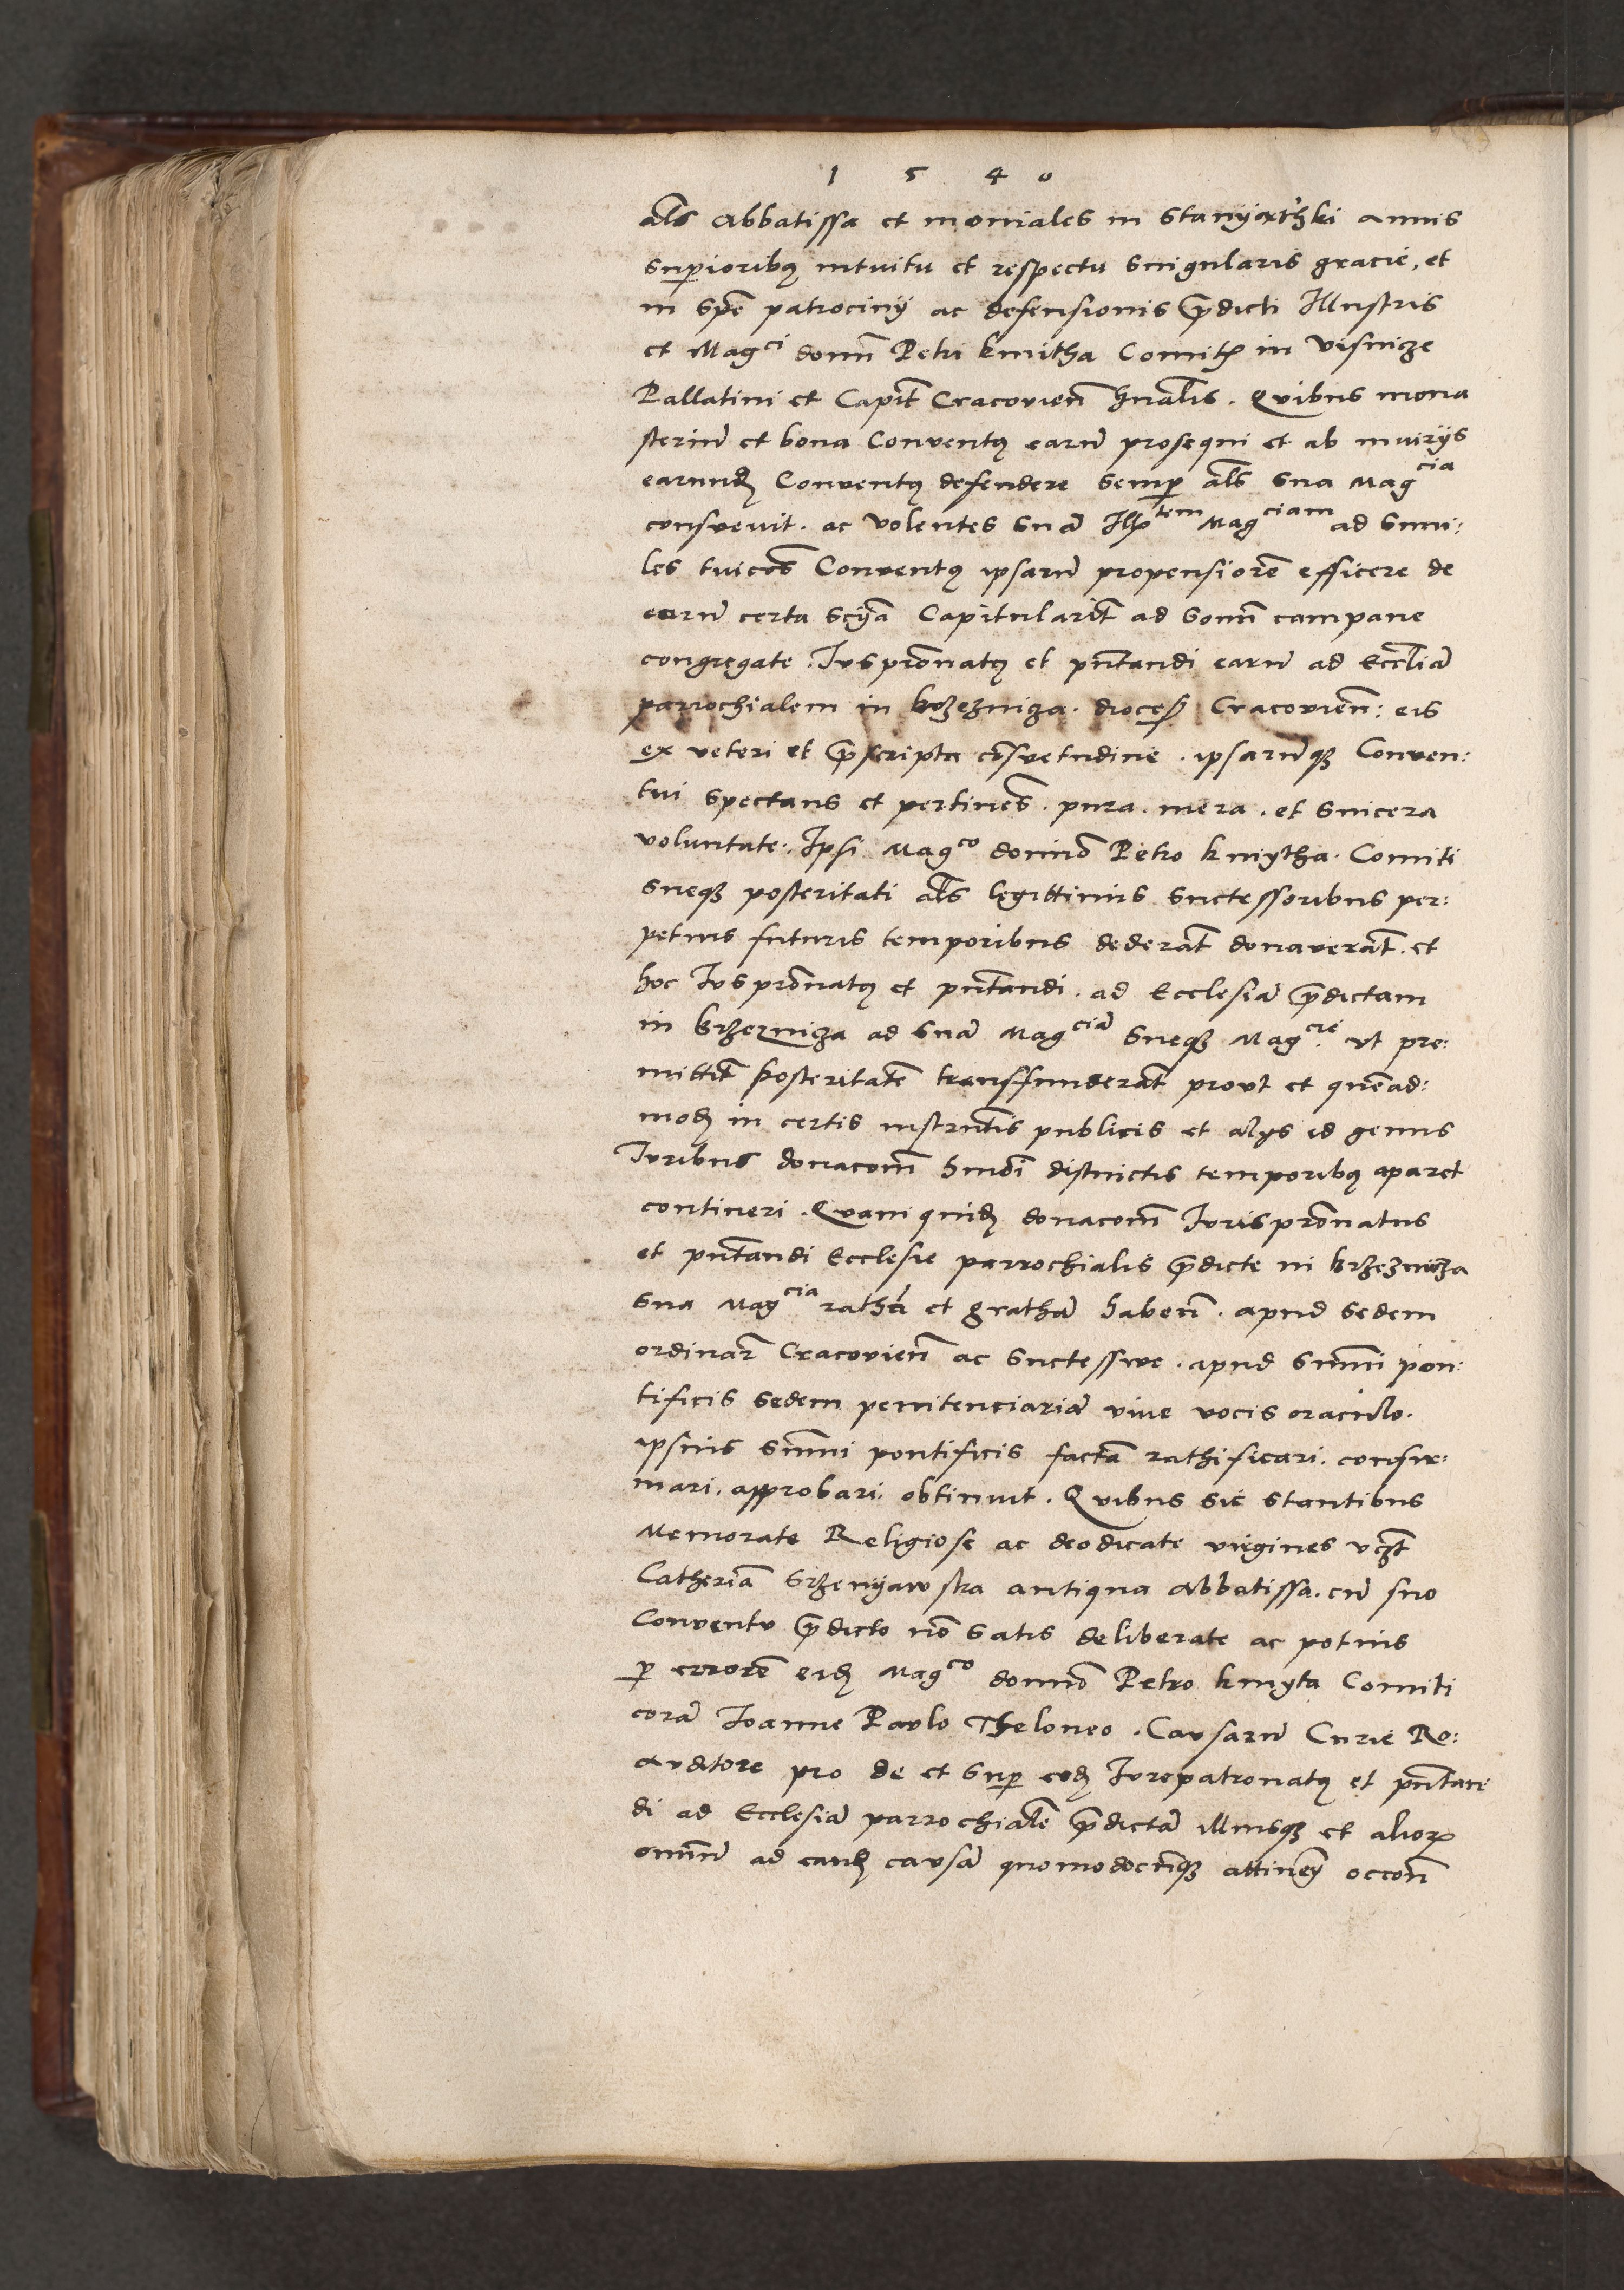 1 5 4 0
als Abbatissa et moniales in Stanyathki annis
superioribus intuitu et respectu singularis gracie, et
in spem patrocinij ac defensionis p̄dicti Illustris
et Mag^ci domī Petri kmitha Comitis in Visnicze
Pallatini et Capit̄ Cracovien̄ gn̄alis. Quibus mona
steriū et bona Conventus earū prosequi et ab iniurijs
earundē Conventus defendere semp als sua Mag^cia
consuevit. ac volentes suā Ill^tem Mag^ciam ad simi:
les tuicōes Conventus ipsarū propensiorē efficere de
earū certa sciā Capitularit̄ ad sonū campane
congregate. Juspr̄onatus et pn̄tandi earū ad Eccl̄iā
parrochialem in brzezniza. diocesis Cracovien̄: eis
ex veteri et p̄scripta cōsvetudine. ipsarūque Conven:
tui spectans et pertinēs. pura. mera. et sincera
voluntate. Ipsi Mag^co domino Petro kmytha. Comiti
sueque posteritati als legittimis successoribus per:
petuis futuris temporibus dederāt donaverāt. et
hoc Juspr̄onatus et pn̄tandi. ad Ecclesiā p̄dictam
in brzezniza ad suā Mag^ciā sueque Mag^cie. ut pre:
mittit̄ posteritatē transfunderāt prout et quēad:
modū in certis instrn̄tis publicis et alys id genus
Juribus donacōem hmōi distinctis temporibus aparet
contineri. Quam quidē donacōem Jurispr̄onatus
et pn̄tandi Ecclesie parrochialis p̄dicte in brzezniza
sua Mag^cia rathā et grathā haben̄. apud sedem
ordinar̄ Cracovien̄ ac successive. apud summi pon:
tificis sedem penitenciariā vive vocis oraculo.
ipsius summi pontificis factā rathificari. confir:
mari. approbari. obtinuit. Quibus sic stantibus
Memorate Religiose ac deodicate virgines vczt
Catherina Srzenyawska antiqua Abbatissa. cū suo
Conventu p̄dicto nō satis deliberate ac potius
p errorē eidē Mag^co domino Petro kmyta Comiti
corā Joanne Paulo Theloneo. Causarū Curie Ro:
Auditore pro de et sup eodē Jurepatronatus et pn̄tan
di ad Ecclesiā parrochialē p̄dictā illiusque et alior̄
omniū ad eandē causā quomodocūque attinen̄ occon̄